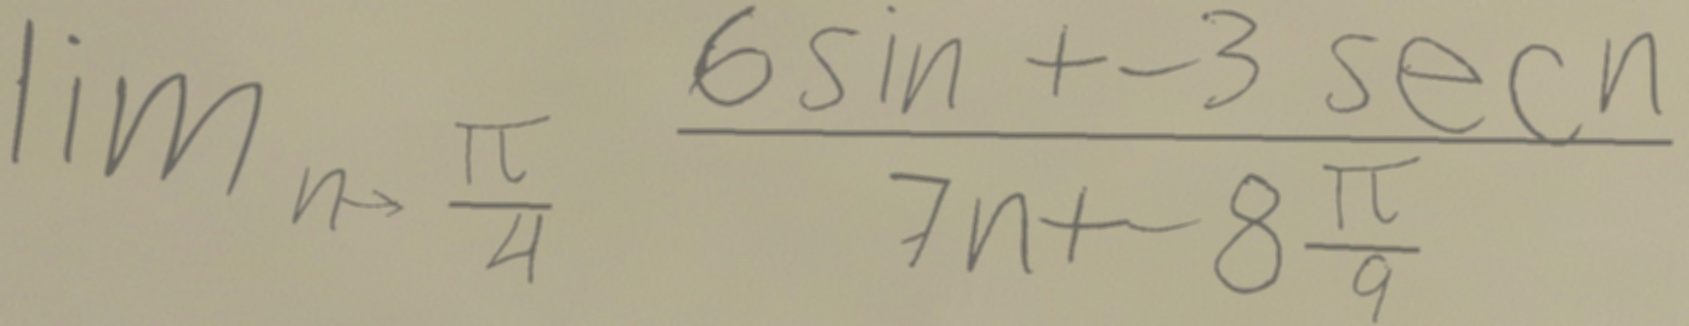 \lim_{n \to \frac{\pi}{4}} \frac{6 \sin + -3 \sec n}{7n + -8 \frac{\pi}{9}}